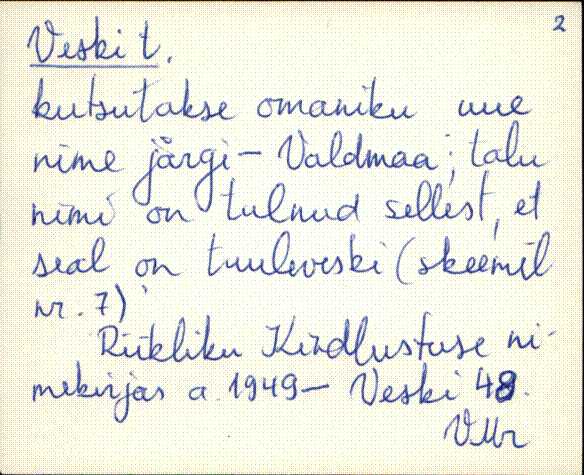 2
Veski t.
kutsutakse omaniku uue
nime järgi – Valdmaa; talu
nimi on tulnud sellest, et
seal on tuuleveski (skeemil
nr. 7)
Riikliku Kindlustuse ni-
mekirjas a. 1949 – Veski 48.
VMr